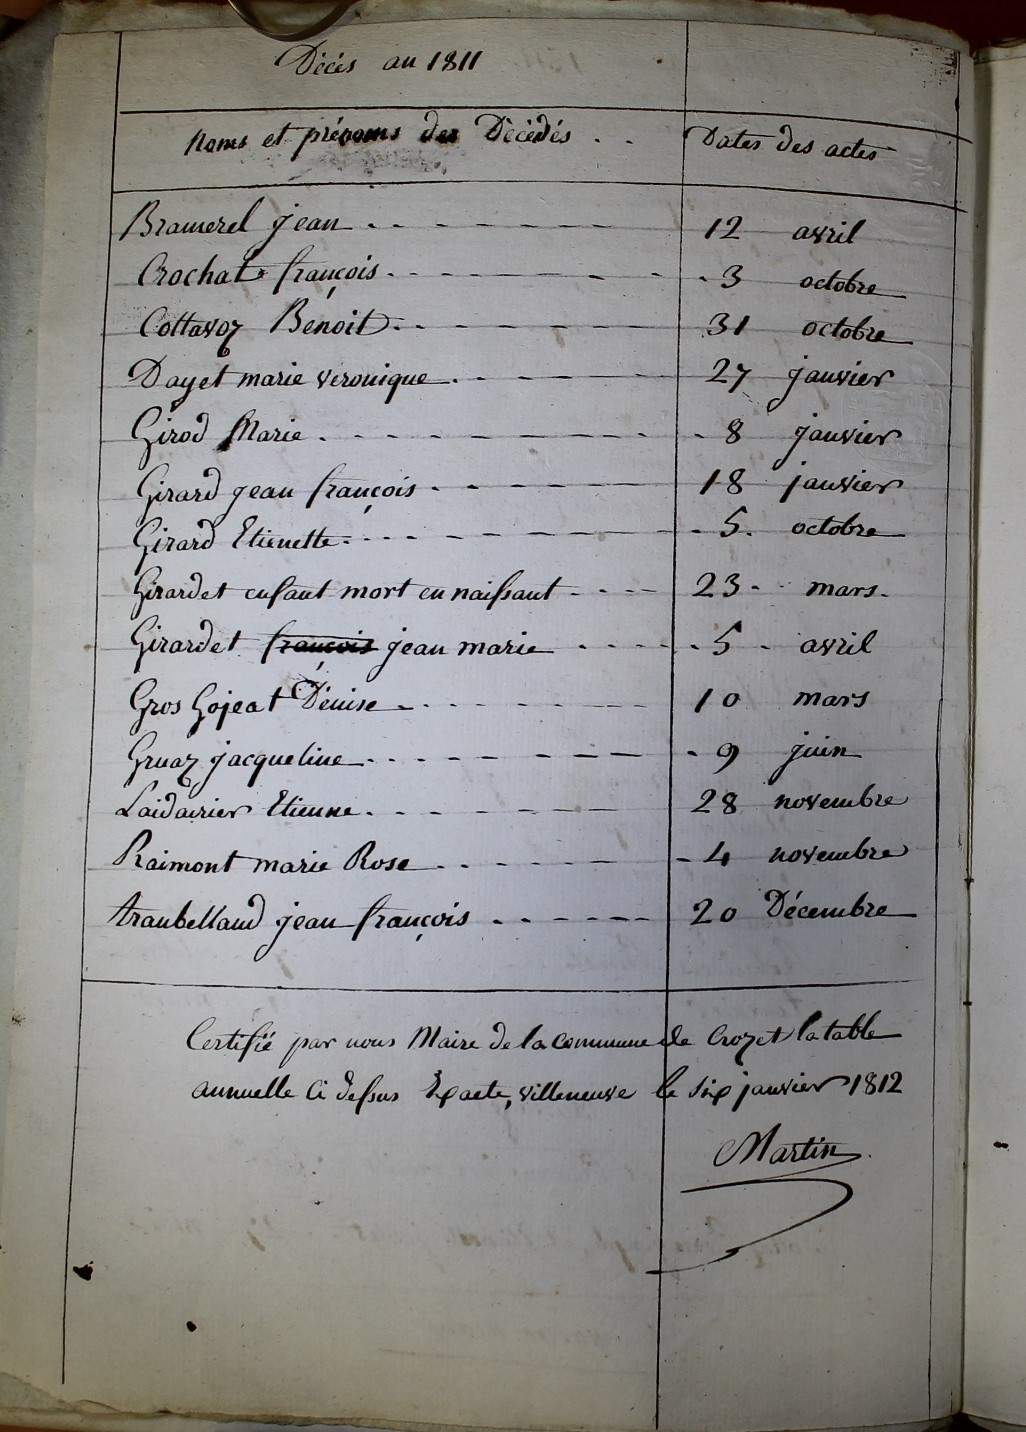 Décés an 1811
Noms et prénoms des Décédés . . Dates des actes
Bramerel jean 12 avril
Crochat françois 3 octobre
Cottavoz Benoit 31 octobre
Dayet marie veronique 27 janvier
Girod Marie 8 janvier
Girard jean françois 18 janvier
Girard Etienette 5. octobre
Girardet enfant mort en naissant 23 mars.
Girardet françois jean marie 5 avril
Gros Gojeat Dénise 10 mars
Gruaz jacqueline 9 juin
Laidairier Etienne 28 novembre
Raimont marie Rose 4 novembre
trambelland jean françois 20 Décembre
Certifié par nous Maire de la Commune de Crozet la table
annuelle Ci dessus Exacte, villeneuve le six janvier 1812
Martin